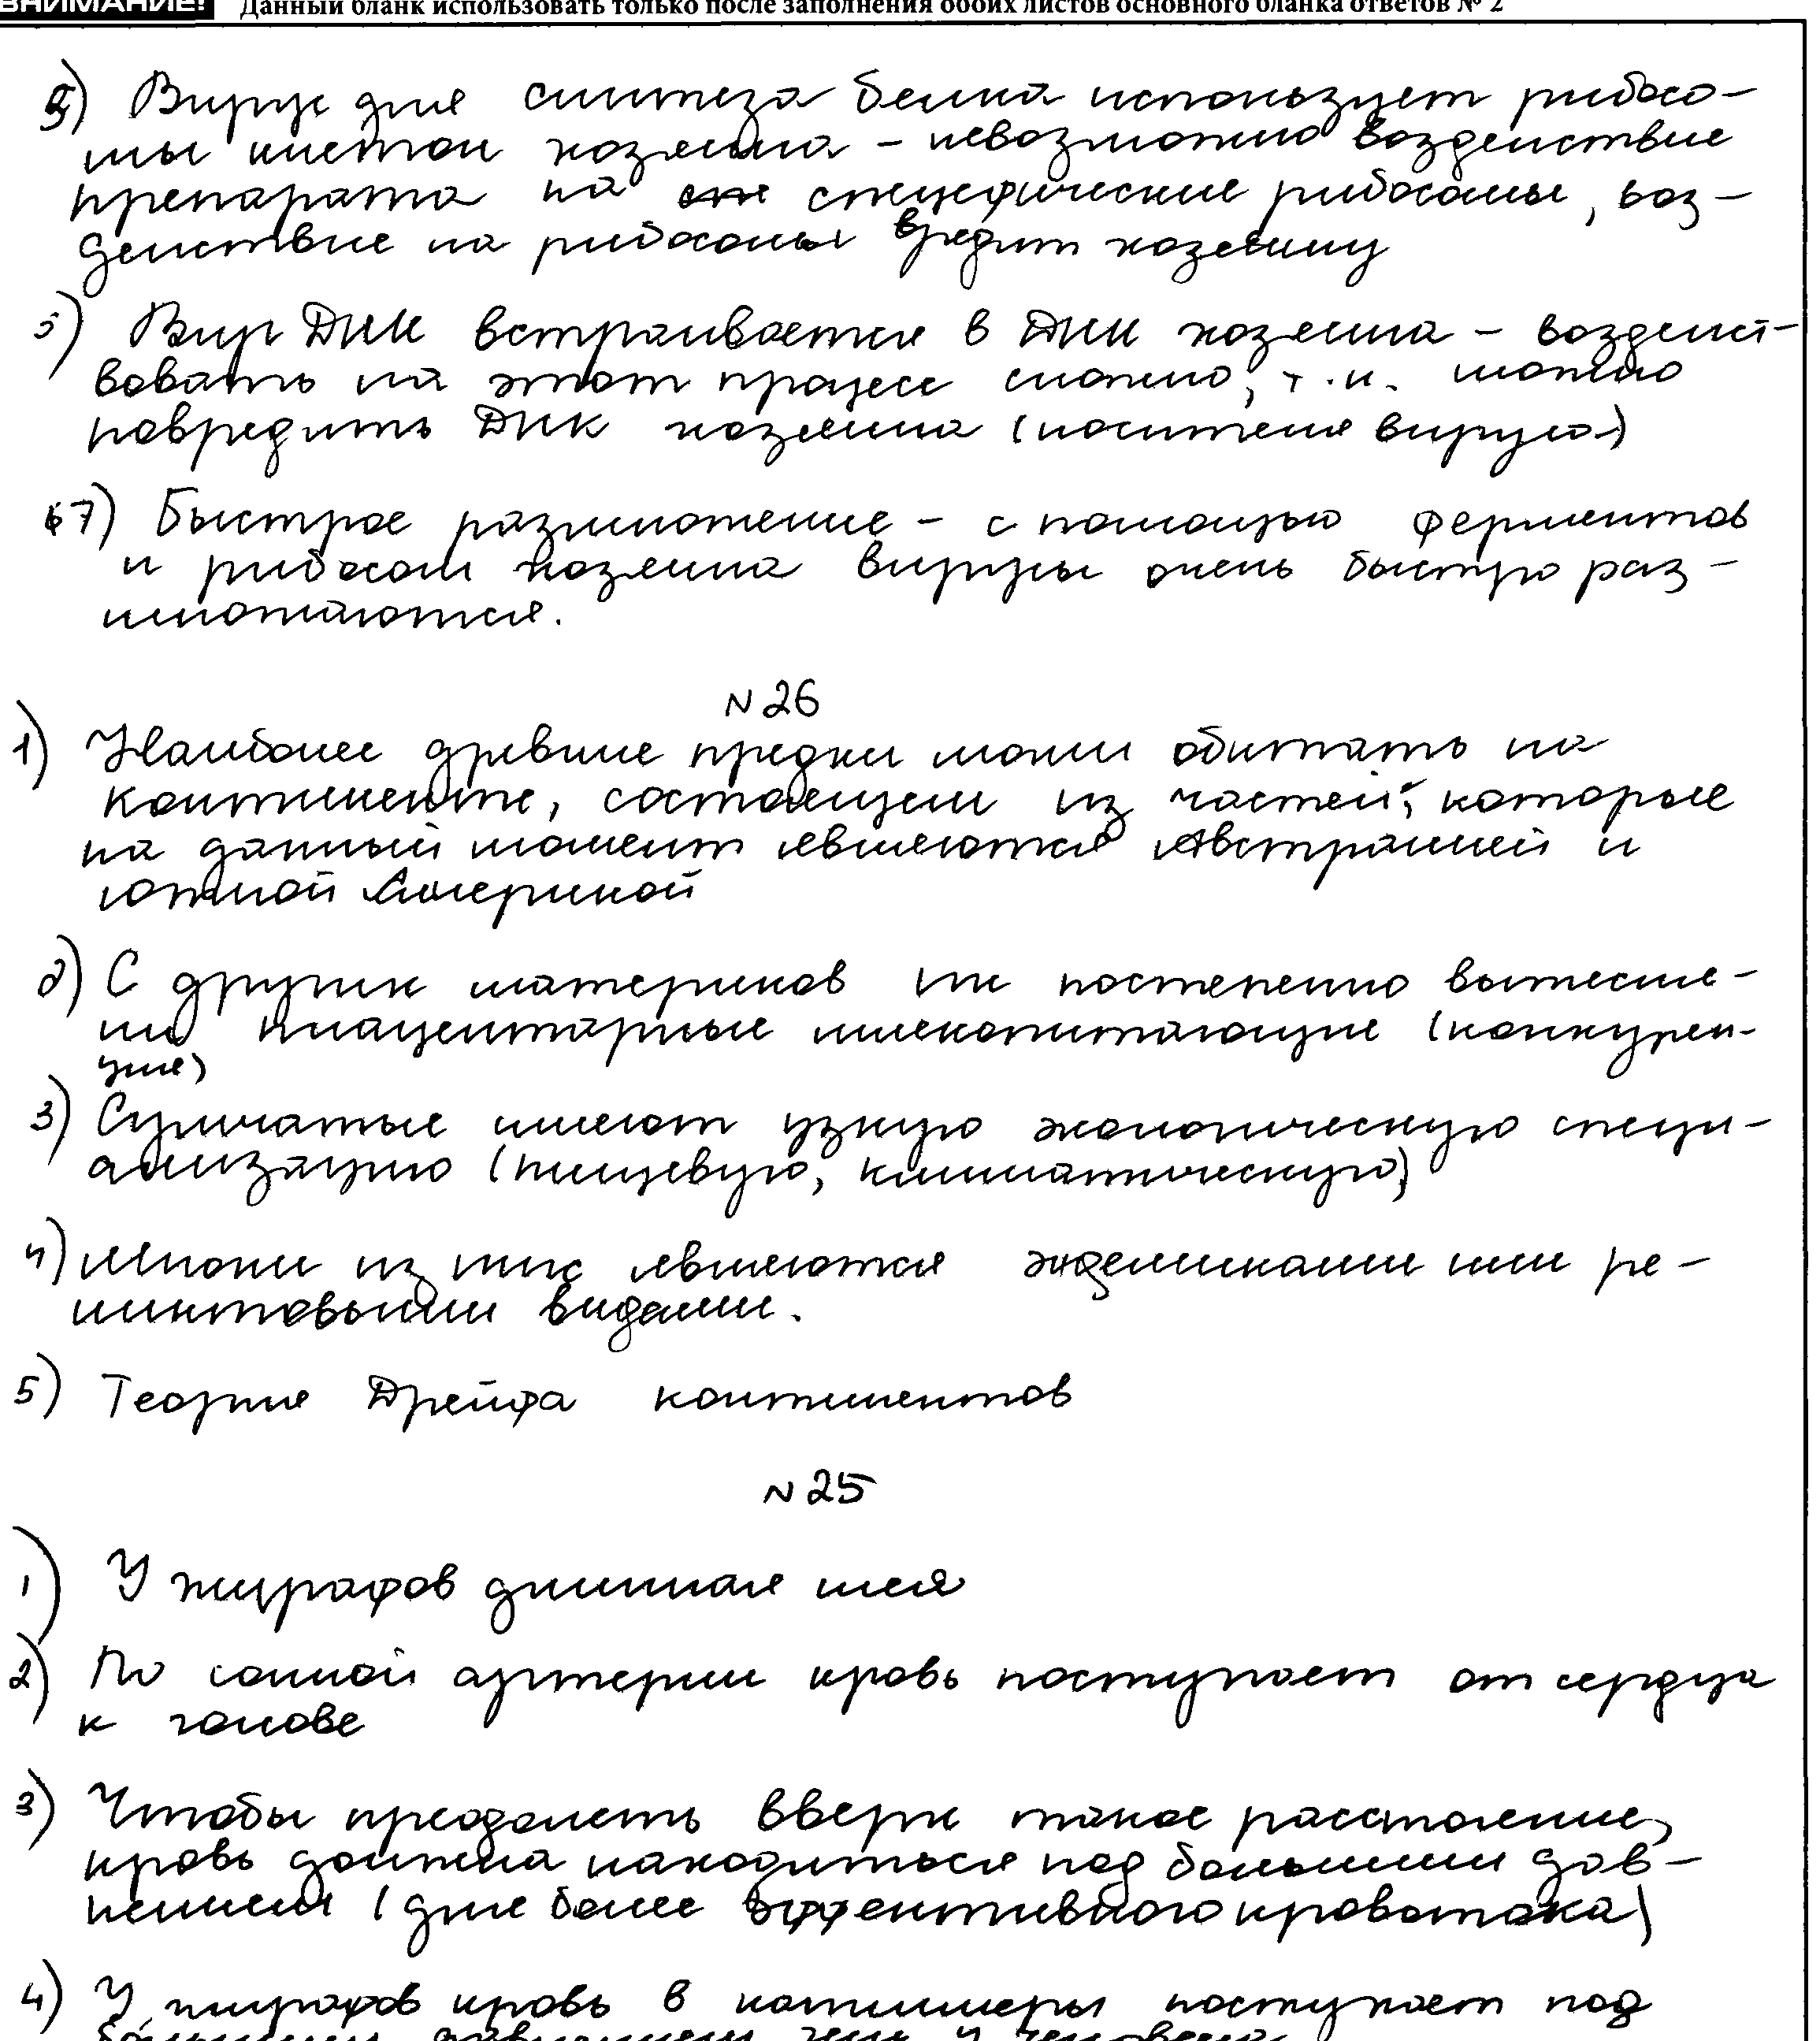 ВНИМАНИЕ! Данный бланк использовать только после заполнения обоих листов основного бланка ответов № 2
5) Вирус для синтеза белка использует рибосо-
мы клеток хозяина - невозможно воздействие
препарата на специфические рибосомы, воз-
действие на рибосомы вредит хозяину
5) Вир ДНК встраивается в ДНК хозяина - воздейст-
вовать на этот процесс сложно, т.к. можно
повредить ДНК хозяина (носителя вируса)
67) Быстрое размножение - с помощью ферментов
и рибосом хозяина вирусы очень быстро раз-
множаются.
N 26
1) Наиболее древние предки могли обитать на
континенте, состоящем из частей, которые
на данный момент являются Австралией и
Южной Америкой
2) С других материков их постепенно вытесни-
ли плацентарные млекопитающие (конкурен-
ция)
3) Сумчатые имеют узкую экологическую специ-
ализацию (пищевую, климатическую)
4) Многие из них являются эндемиками или ре-
ликтовыми видами.
5) Теория Дрейфа континентов
N 25
1) У жирафов длинная шея
2) По сонной артерии кровь поступает от сердца
к голове
3) Чтобы преодолеть вверх такое расстояние,
кровь должна находиться под большим дав-
лением (для более эффективного кровотока)
4) У жирафов кровь в капилляры поступает под
большим давлением чем у человека